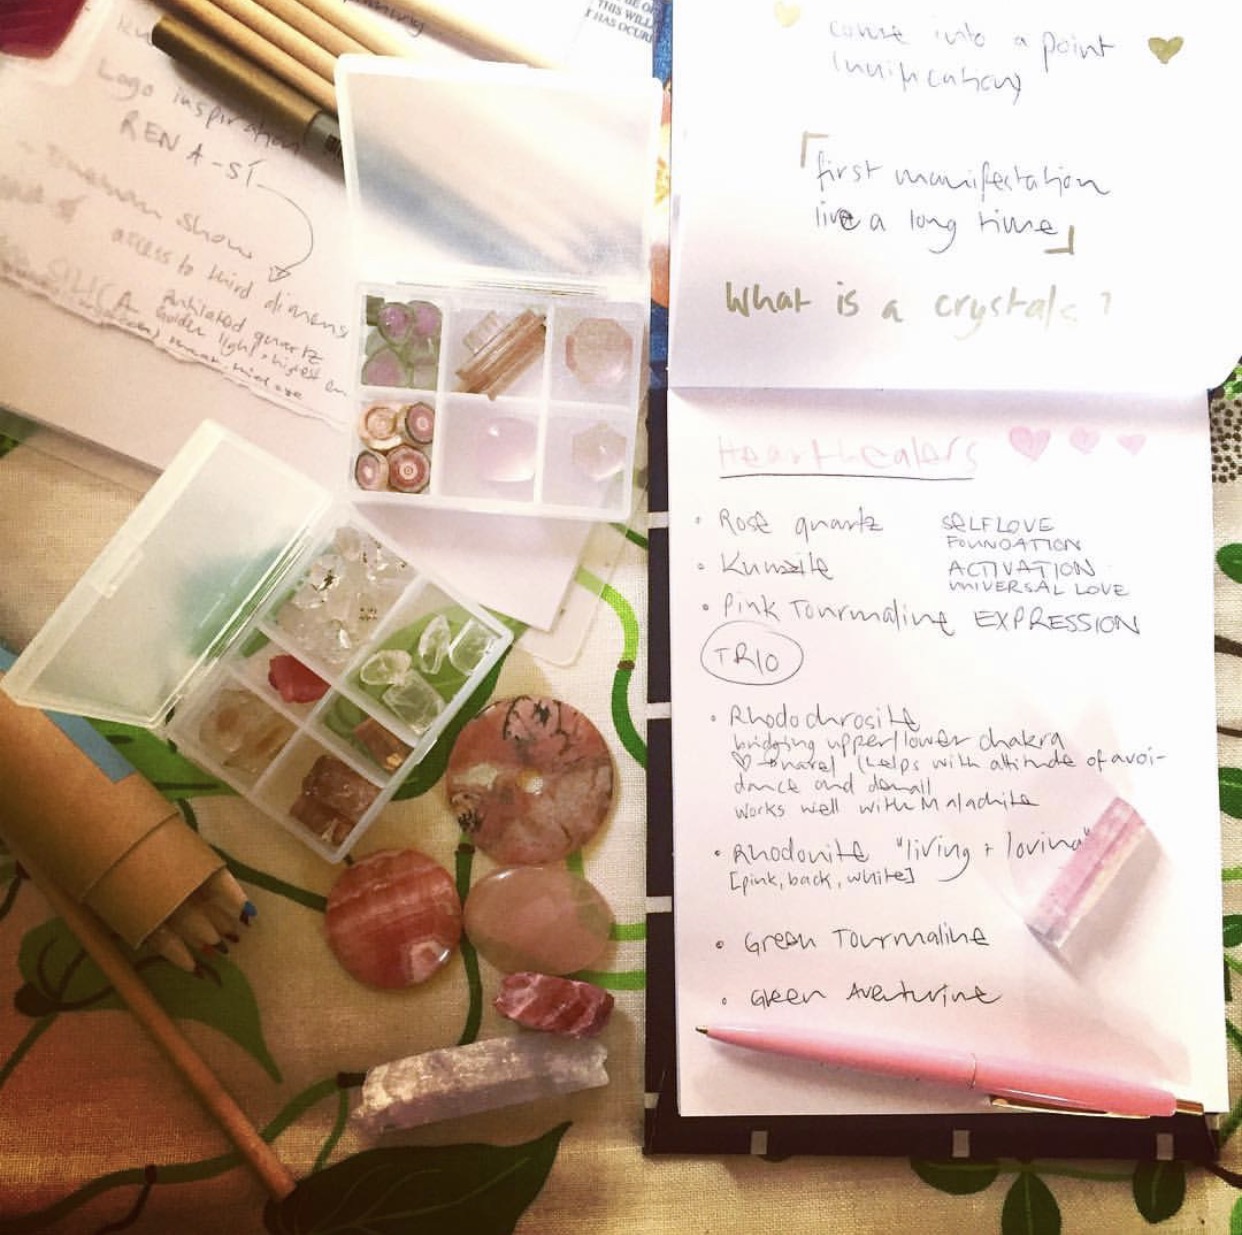 THIS WILL
Logo inspiration
RENA-SÍ
Trueman show
access to third dimens
Golden light + highest
come into a point
(unification)
「first manifestation
live a long time」
What is a crystals?
Hearthealers
• Rose quartz SELFLOVE
FOUNDATION
• Kunzite ACTIVATION
UNIVERSAL LOVE
• Pink Tourmaline EXPRESSION
TRIO
• Rhodochrosite
bridging upper/lower chakra
(helps with attitude of avoi-
dance and denial)
works well with Malachite
• Rhodonite "living + loving"
[pink, back, white]
• Green Tourmaline
• Green Aventurine